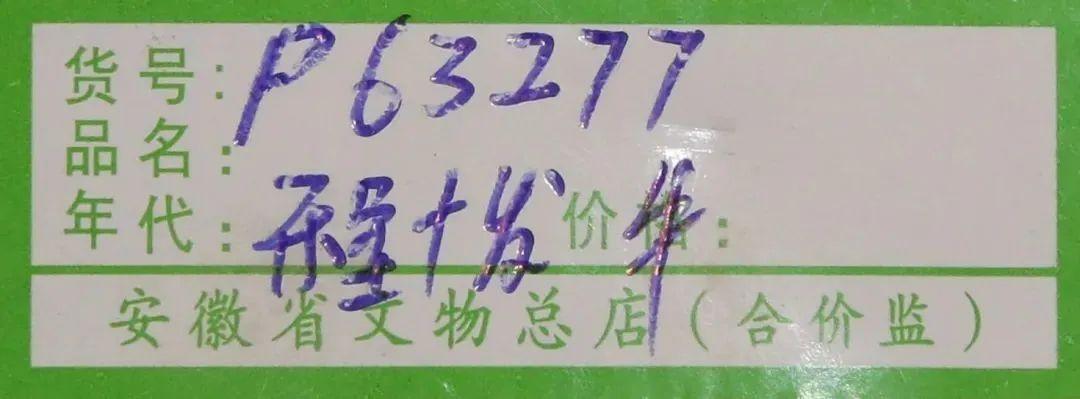 货号: P63277
品名:
年代: 程十发 价格:
安徽省文物总店(合价监)